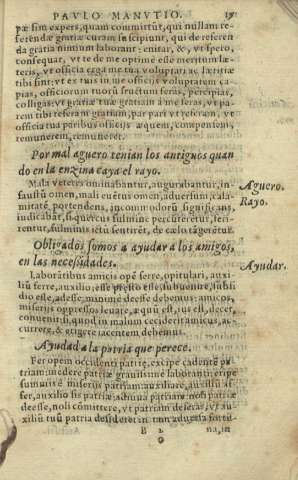 PAVLO MANVTIO. 19
pæ sim expers, quam committūt, qui nullam re-
ferendæ gratiæ curam suscipiunt, qui de referen
da gratia nimium laborant: enitar, &, vt spero,
consequar, vt te de me optime esse meritum læ-
teris, vt officia erga me tua voluptati ac lætitiæ
tibi sint: vt ex tuis in me officijs voluptatem ca-
pias, officiorum tuorū fructum feras, percipias,
colligas: vt gratiæ tuæ gratiam à me feras, vt pa-
rem tibi referat gratiam, par pari vt referam, vt
officia tua paribus officijs æquem, compensem,
remunerem, remunerer.
Por mal aguero tenian los antiguos quan
do en la enzina caya el rayo.
Aguero.
Mala veteres ominabantur, augurabantur, in-
Rayo.
faustū omen, mali euētus omen, aduersum, cala-
mitatē portendens, incommodorū significans,
iudicabāt, si quercus fulmine percuterētur, feri-
rentur, fulminis ictū sentirēt, de cælo tāgerētur.
Obligados somos a ayudar a los amigos,
en las necessidades.
Ayudar.
Laborātibus amicis opē ferre, opitulari, auxi-
liū ferre, auxilio esse præsto esse, subuenire, subsi
dio esse, adesse, minime deesse debemus: amicos,
miserijs oppressos leuare, æquū est, ius est, decet,
conuenit: si quod in malum deciderit amicus, ac-
currere, & erigere iacentem debemus.
Ayudad a la patria que perece.
Per opem occidenti patriæ, excipe cadentē pa-
triam: medere patriæ grauissime laboranti: eripe
sumijs miserijs patriam: auxiliare, auxiliū af
fer, auxilio sis patriæ: adiuua patriam: noli patriæ
deesse, noli cōmittere, vt patriam deseras, vt au-
xiliū tuū patria desideret in tam aduersa fortu-
B 2 na, in